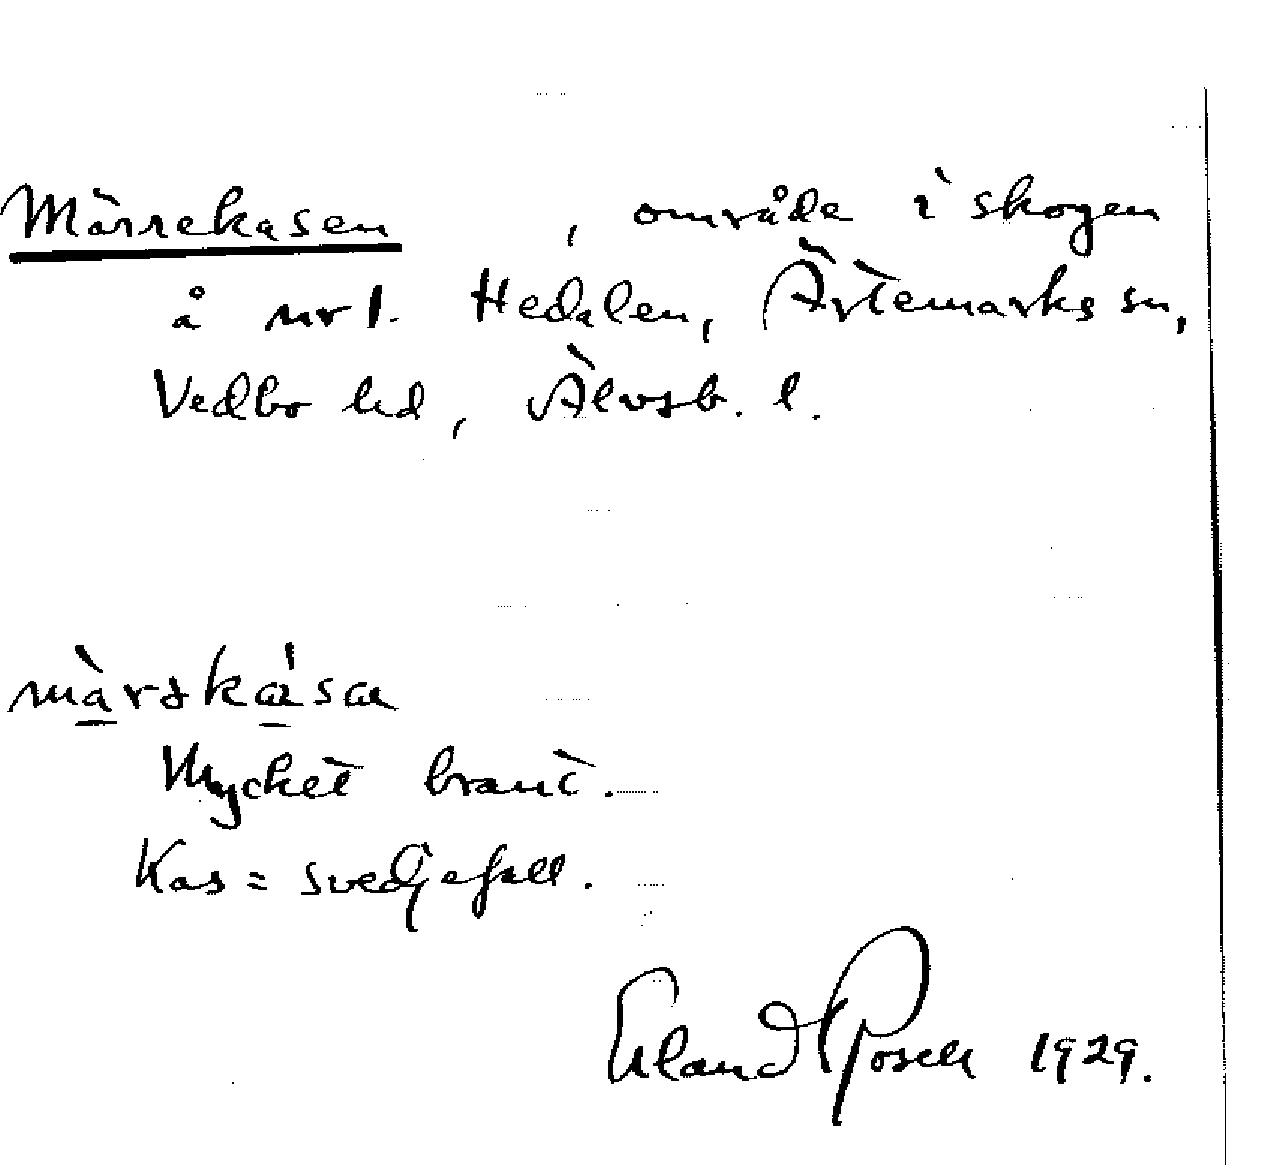 Märrekasen , område i skogen
å nr 1. Hedalen, Ärtemarks sn,
Vedbo hd, Älvsb. l.
Mycket brant.
Kas = svedjefall.
Erland Rosell 1929.